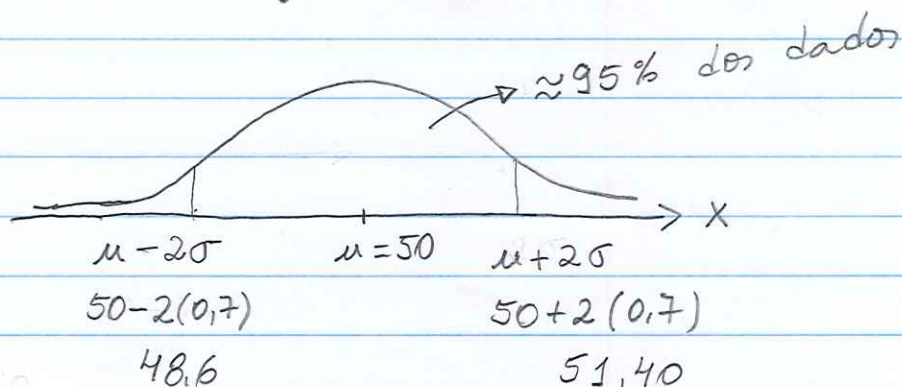 ≈95% dos dados
X
μ-2σ μ=50 μ+2σ
50-2(0,7) 50+2(0,7)
48,6 51,40